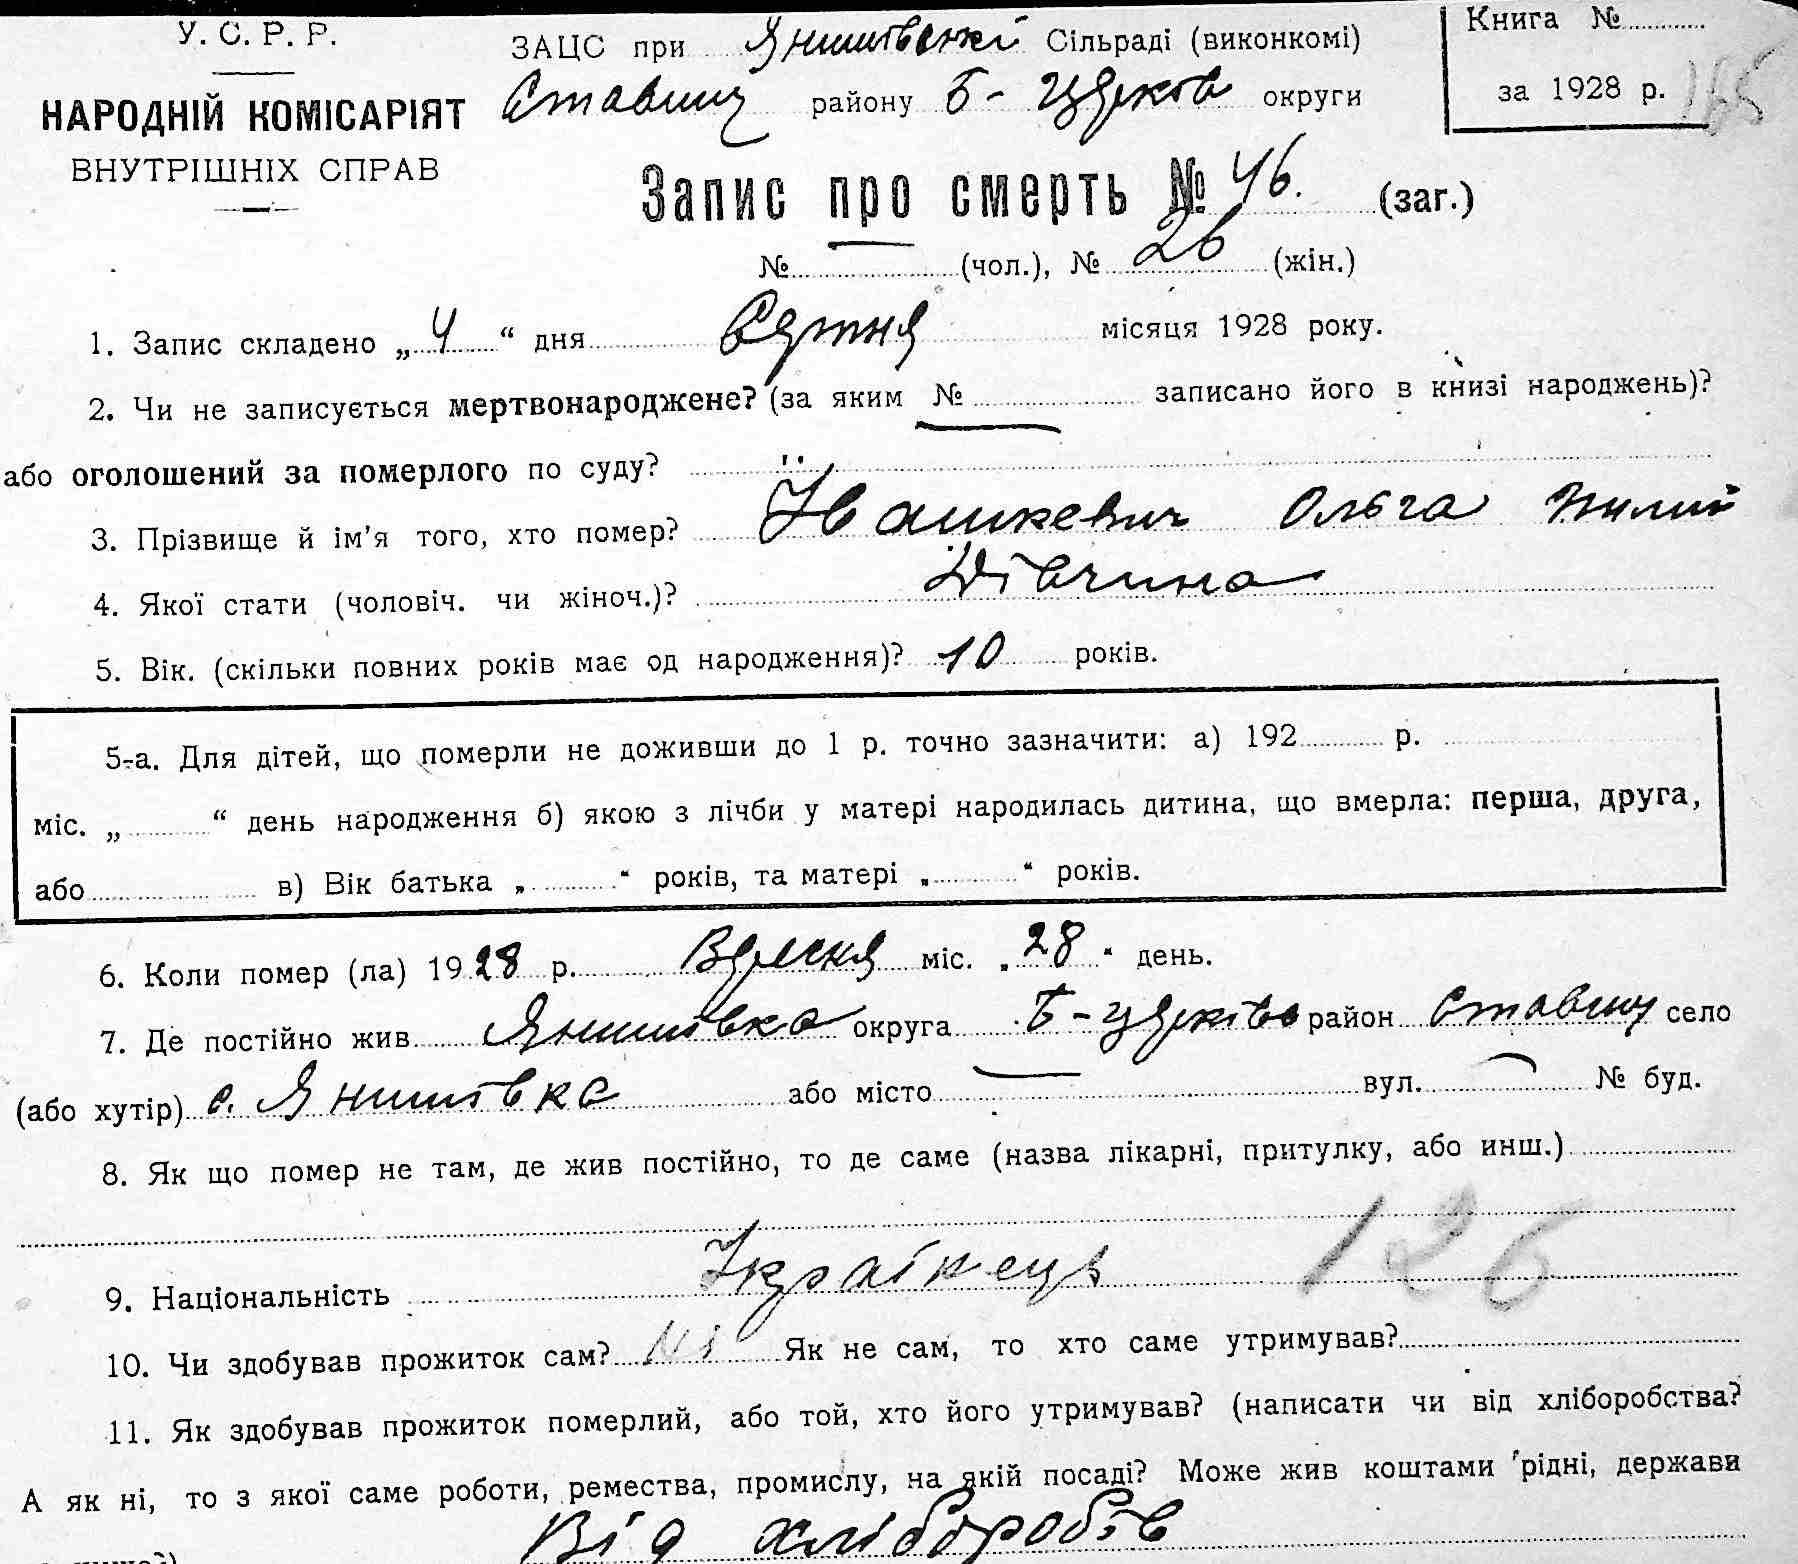 У. С. Р. Р.
НАРОДНІЙ КОМІСАРІЯТ
ВНУТРІШНІХ СПРАВ
ЗАЦС при Янишівській Сільраді (виконкомі)
Ставищ району Б-Церків округи
Книга №
за 1928 р. 165
Запис про смерть № 46. (заг.)
№ (чол.), № 26 (жін.)
1. Запис складено „ 4 “ дня місяця 1928 року.
2. Чи не записується мертвонароджене? (за яким № записано його в книзі народжень)?
або оголошений за померлого по суду?
3. Прізвище й ім'я того, хто помер? Івашкевич Ольга
4. Якої стати (чоловіч. чи жіноч.)? Дівчина
5. Вік. (скільки повних років має од народження)? 10 років.
5-а. Для дітей, що померли не доживши до 1 р. точно зазначити: а) 192 р.
міс. „ “ день народження б) якою з лічби у матері народилась дитина, що вмерла: перша, друга,
або в) Вік батька „ “ років, та матері „ “ років.
6. Коли помер (ла) 1928 р. Вересня міс. „ 28 “ день.
7. Де постійно жив Янишівка округа Б-Церківо район Ставищ село
(або хутір) с. Янишівка або місто вул. № буд.
8. Як що помер не там, де жив постійно, то де саме (назва лікарні, притулку, або инш.)
9. Національність Українець 126
10. Чи здобував прожиток сам? Ні Як не сам, то хто саме утримував?
11. Як здобував прожиток померлий, або той, хто його утримував? (написати чи від хліборобства?
А як ні, то з якої саме роботи, ремества, промислу, на якій посаді? Може жив коштами рідні, держави
Від хліборобів